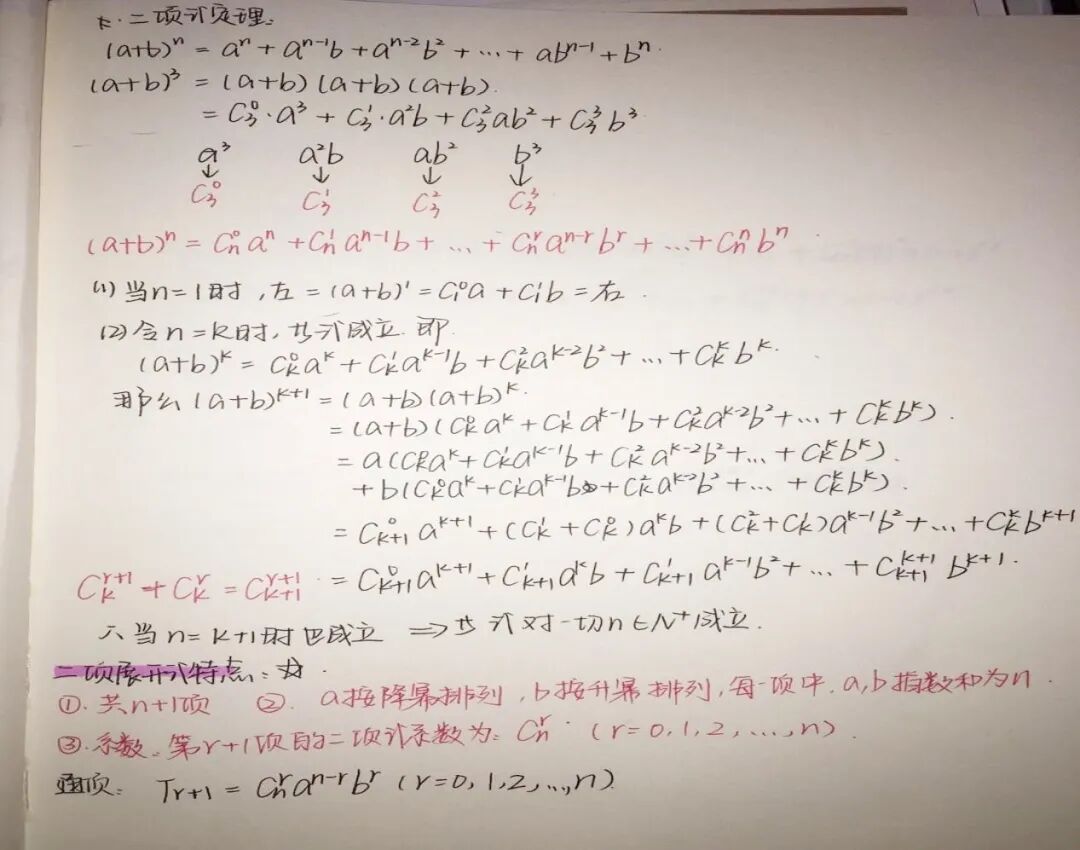 卡.二项式定理:
(a+b)ⁿ = aⁿ + aⁿ⁻¹b + aⁿ⁻²b² + ... + abⁿ⁻¹ + bⁿ
(a+b)³ = (a+b)(a+b)(a+b).
= C₃⁰·a³ + C₃¹·a²b + C₃²ab² + C₃³b³
a³ a²b ab² b³
↓ ↓ ↓ ↓
C₃⁰ C₃¹ C₃² C₃³
(a+b)ⁿ = Cₙ⁰aⁿ + Cₙ¹aⁿ⁻¹b + ... + Cₙʳaⁿ⁻ʳbʳ + ... + Cₙⁿbⁿ
(1) 当n=1时,左=(a+b)¹=C₁⁰a+C₁¹b=右.
(2) 令n=k时,此式成立.即
(a+b)ᵏ = Cₖ⁰aᵏ + Cₖ¹aᵏ⁻¹b + Cₖ²aᵏ⁻²b² + ... + Cₖᵏbᵏ.
那么(a+b)ᵏ⁺¹ = (a+b)(a+b)ᵏ.
= (a+b)(Cₖ⁰aᵏ + Cₖ¹aᵏ⁻¹b + Cₖ²aᵏ⁻²b² + ... + Cₖᵏbᵏ).
= a(Cₖ⁰aᵏ + Cₖ¹aᵏ⁻¹b + Cₖ²aᵏ⁻²b² + ... + Cₖᵏbᵏ).
+ b(Cₖ⁰aᵏ + Cₖ¹aᵏ⁻¹b + Cₖ²aᵏ⁻²b² + ... + Cₖᵏbᵏ).
= Cₖ₊₁⁰aᵏ⁺¹ + (Cₖ¹+Cₖ⁰)aᵏb + (Cₖ²+Cₖ¹)aᵏ⁻¹b² + ... + Cₖᵏbᵏ⁺¹
Cₖʳ⁺¹ + Cₖʳ = Cₖ₊₁ʳ⁺¹ = Cₖ₊₁⁰aᵏ⁺¹ + Cₖ₊₁¹aᵏb + Cₖ₊₁¹aᵏ⁻¹b² + ... + Cₖ₊₁ᵏ⁺¹bᵏ⁺¹.
∴当n=k+1时也成立 ⇒ 此式对一切n∈N⁺成立.
二项展开式特点:☆.
①.共n+1项 ②. a按降幂排列,b按升幂排列,每一项中.a,b指数和为n.
③.系数.第r+1项的二项式系数为: Cₙʳ (r=0,1,2,...,n).
通项: Tᵣ₊₁ = Cₙʳaⁿ⁻ʳbʳ (r=0,1,2,...,n)